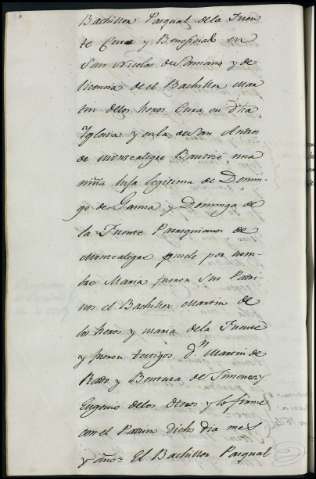 Bachiller Pasqual de la Fuen
te Cura y Beneficiado en
San Nicolas de y de
licencia de el Bachiller Mar
tin delos hoyos Cura en dha
Yglesia y en la de San Anton
de Bautizé una
niña hija legitima de Domin
go de Gauna y Dominga de
la Fuente Parroquianos de
pusele por nom
bre Maria fueron sus Padri
nos el Bachiller Martin de
los hoyos y Maria dela Fuente
y fueron testigos Dn Martin de
y Bentura de
Eugenio delos y lo firmé
con el Padrino dicho dia mes
y año = El Bachiller Pasqual